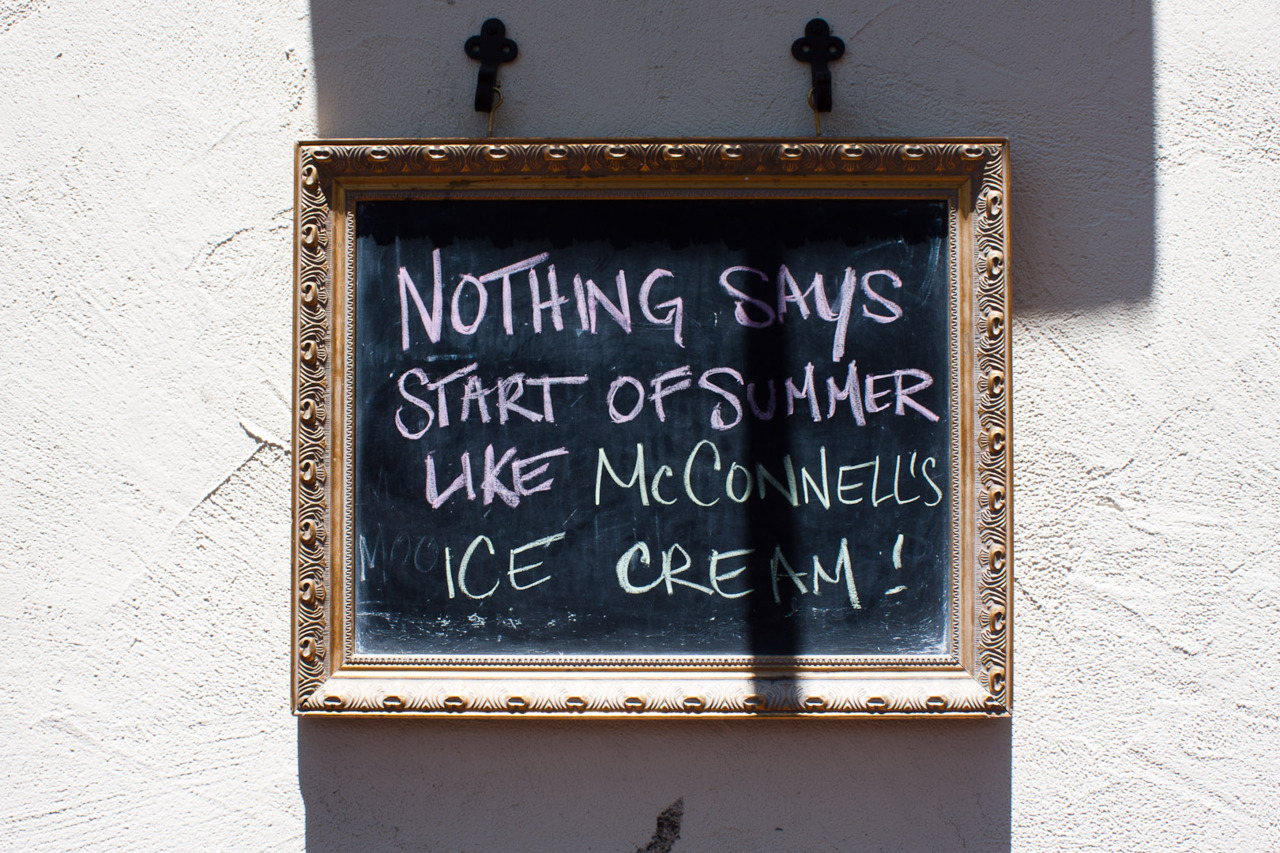 NOTHING SAYS
START OF SUMMER
LIKE McCONNELL'S
ICE CREAM!